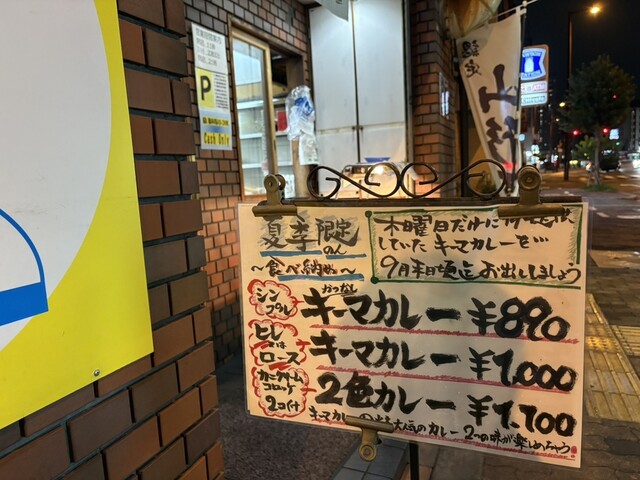 P
Cash Only
限定
夏季限定
のん
〜食べ納め〜
木曜日だけに
していたキーマカレーを…
9月末日頃迄お出ししましょう
シンプル
かつなし
キーマカレー ¥890
ヒレ
又は
ロース
キーマカレー ¥1,000
カニクリーム
コロッケ
2コ付
2色カレー ¥1,100
キーマカレー
大人気のカレー 2つの味が楽しめちゃう